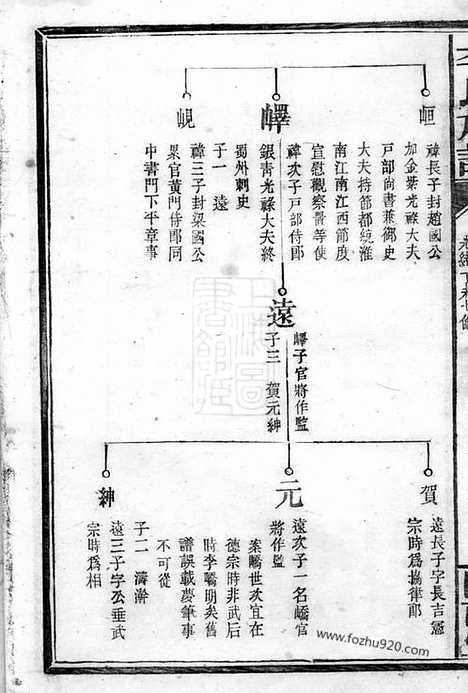 峘
禕長子封趙國公
加金紫光祿大夫
戶部尚書兼御史
大夫持節都統淮
南江南江西節度
宣慰觀察等使
嶧
禕次子戶部侍郎
銀青光祿大夫終
蜀州刺史
子一 遠
峴
禕三子封梁國公
累官黃門侍郎同
中書門下平章事
遠
嶧子官將作監
子三 賀元紳
賀
遠長子字長吉憲
宗時爲協律郎
元
遠次子一名嶠官
將作監
案嶠世次宜在
德宗時非武后
時李嶠明矣舊
譜誤載夢筆事
不可從
子二 濤瀚
紳
遠三子字公垂武
宗時爲相
www.fozhu920.com